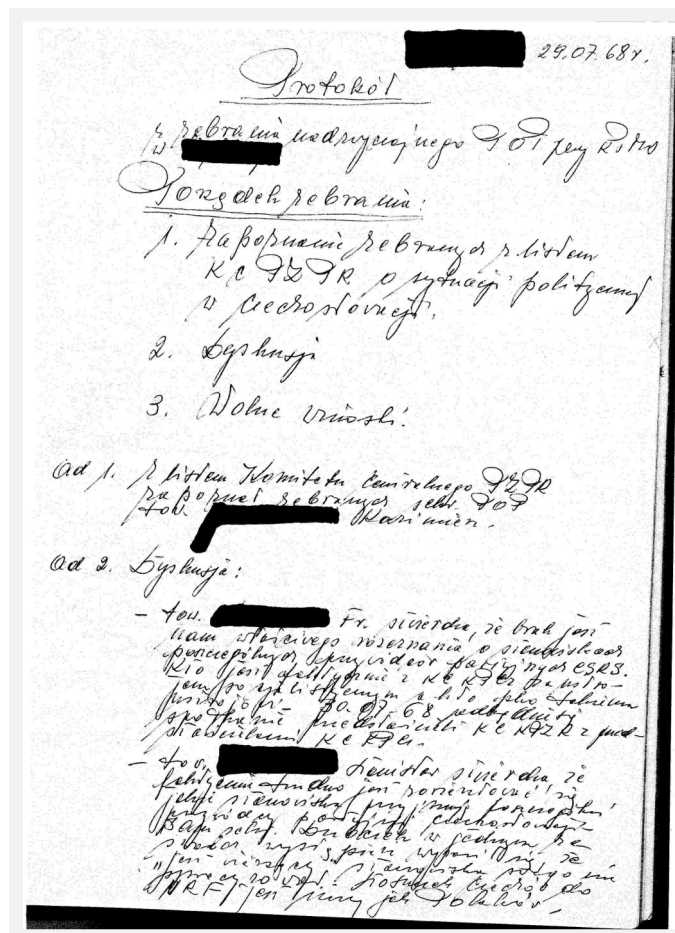 29.07.68r.
Protokół
z zebrania nadzwyczajnego POP przy
w
Porządek zebrania:
1. Zapoznanie zebranych z listem
KC PZPR o sytuacji politycznej
w Czechosłowacji.
2. Dyskusja
3. Wolne wnioski.
Ad 1. Z listem Komitetu Centralnego PZPR
zapoznał zebranych sekr. POP
tow. Kazimierz.
Ad 2. Dyskusja:
- tow. Fr. stwierdza, że brak jest
nam właściwego rozeznania o stanowiskach
poszczególnych przywódców partyjnych CSRS.
Kto jest faktycznie z KC KPCz za ustro-
jem socjalistycznym a kto
30.07.68
spotkanie KC KPZR z przed-
stawicielami KC KPCz.
- tow. Stanisław stwierdza, że
faktycznie trudno jest zorientować się
jakie stanowisko przyjmują poszczególni
przywódcy partyjni Czechosłowacji.
Sam sekr. Dubczek w jednym ze
swoich wystąpień wyraził się, że
"jest
Stosunek Czechów do
NRF jest inny jak Polaków.